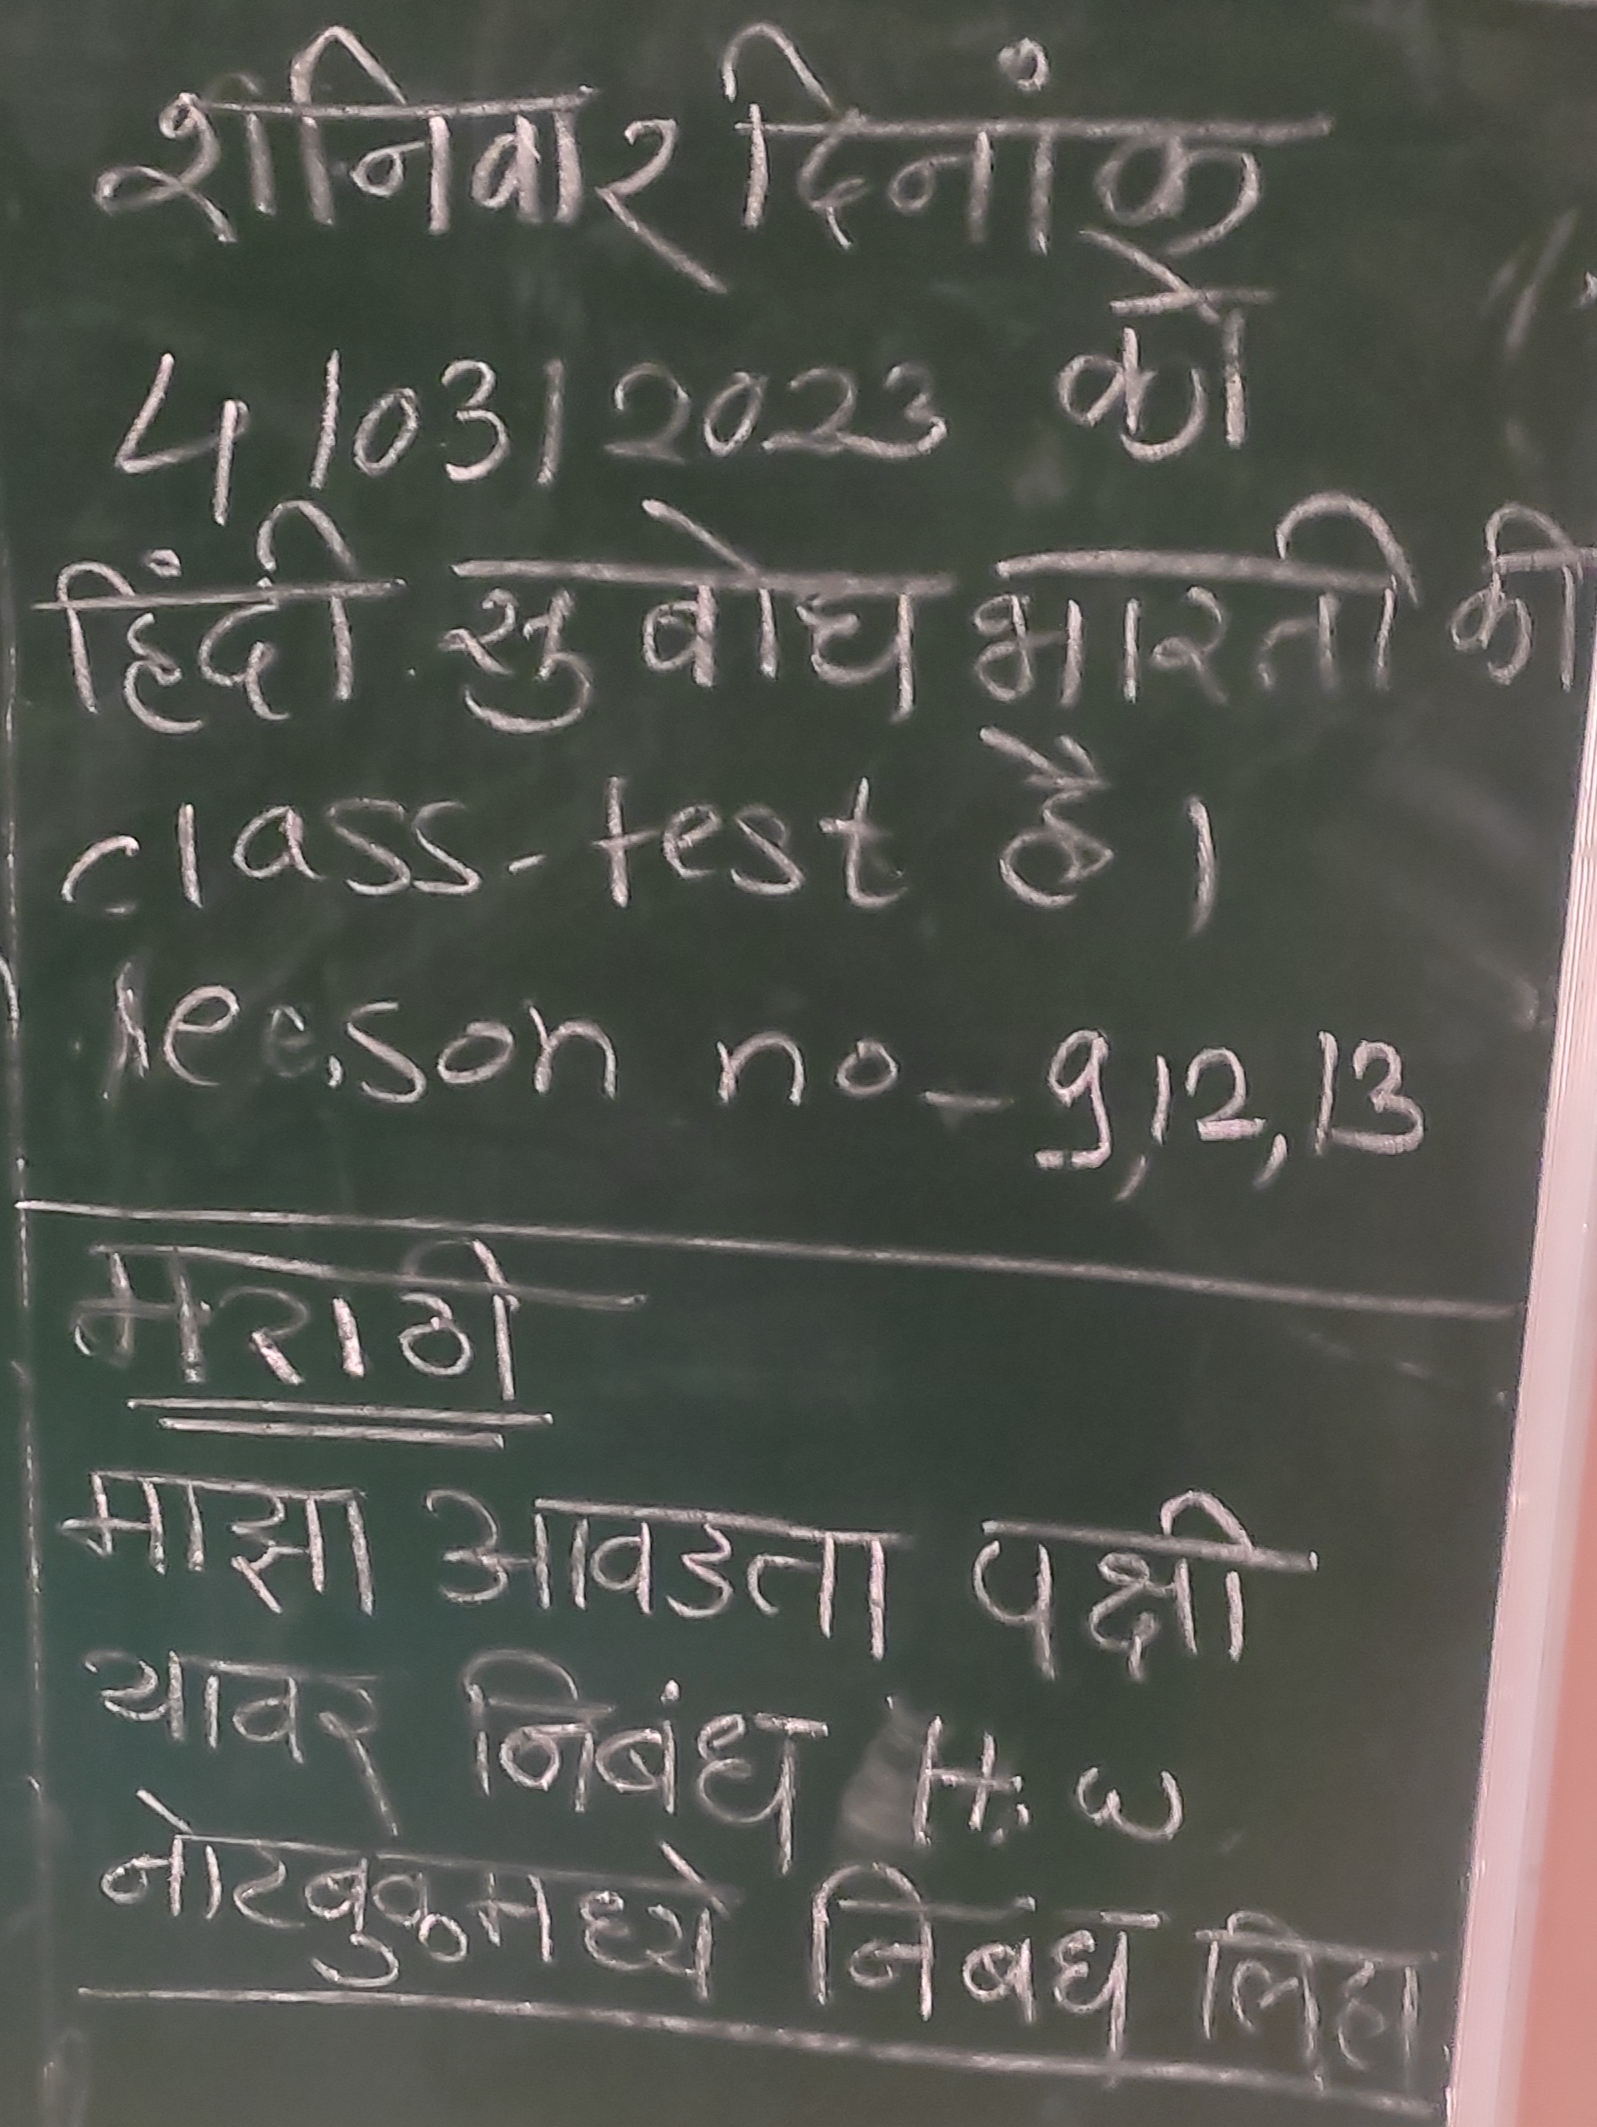 शनिवार दिनांक
4/03/2023 को
हिंदी सुबोध भारती की
class-test है।
leeson no-9,12,13
मराठी
माझा आवडता पक्षी
यावर निबंध H.W
नोटबुकमध्ये निबंध लिहा.